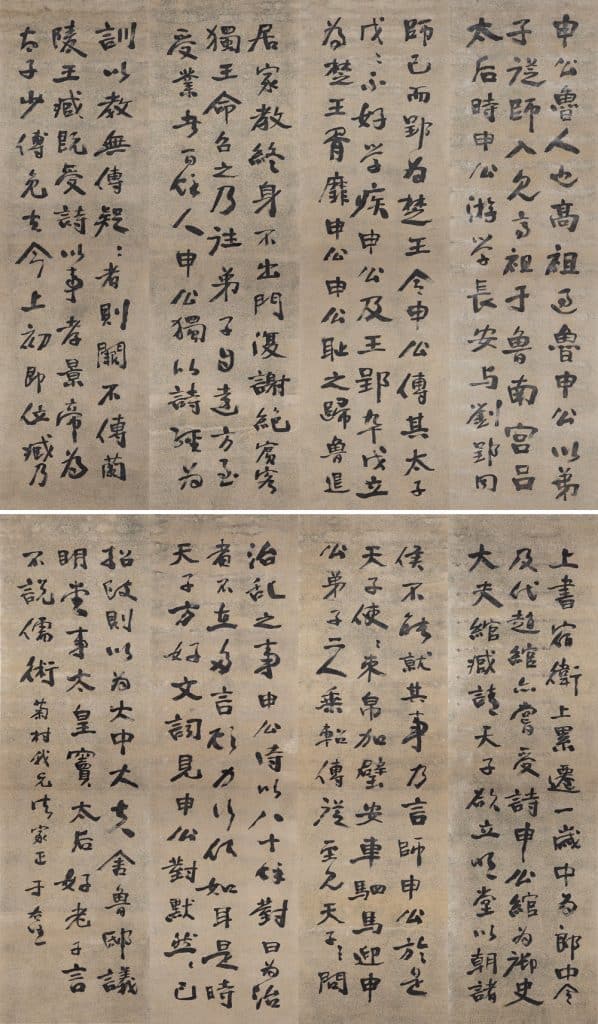 申公魯人也高祖過魯申公以弟
子從師入見高祖于魯南宮呂
太后時申公游学長安与劉郢同
師已而郢為楚王令申公傅其太子
戊〻不好学疾申公及王郢卒戊立
為楚王胥靡申公申公耻之歸魯退
居家教終身不出門復謝絕賓客
獨王命召之乃往弟子自遠方至
受業者百餘人申公獨以詩經為
訓以教無傳疑〻者則闕不傳蘭
陵王臧既受詩以事孝景帝為
太子少傅免去今上初即位臧乃
上書宿衛上累遷一歲中為郎中令
及代趙綰亦嘗受詩申公綰為御史
大夫綰臧請天子欲立明堂以朝諸
侯不能就其事乃言師申公於是
天子使〻束帛加璧安車駟馬迎申
公弟子二人乘軺傳從至見天子〻問
治乱之事申公時以八十餘對曰為治
者不在多言顧力行何如耳是時
天子方好文詞見申公對默然〻已
招致則以為太中大夫舍魯邸議
明堂事太皇竇太后好老子言
不説儒術 菊村我兄法家正 于右任